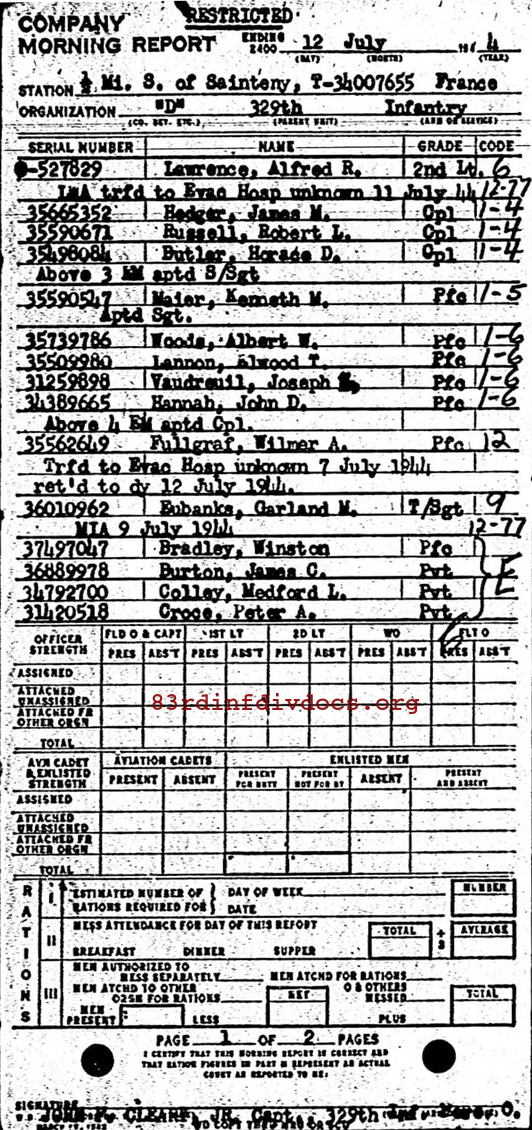 COMPANY RESTRICTED
MORNING REPORT ENDING 2400 12 July 194 4
(DAY) (MONTH) (YEAR)
STATION ½ Mi. S. of Sainteny, T-34007655 France
ORGANIZATION "D" 329th Infantry
(CO. DET. ETC.) (PARENT UNIT) (ARM OR SERVICE)
SERIAL NUMBER NAME GRADE CODE
O-527829 Lawrence, Alfred R. 2nd Lt. 6
LWA trfd to Evac Hosp unknown 11 July 44 12-77
35665352 Hedger, James M. Cpl 1-4
35590671 Russell, Robert L. Cpl 1-4
35498084 Butler, Horace D. Cpl 1-4
Above 3 EM aptd S/Sgt
35590547 Maier, Kenneth M. Pfc 1-5
Aptd Sgt.
35739786 Woods, Albert W. Pfc 1-6
35509980 Lannon, Elwood T. Pfc 1-6
31259898 Vaudreuil, Joseph Pfc 1-6
34389665 Hannah, John D. Pfc 1-6
Above 4 EM aptd Cpl.
35562649 Fullgraf, Wilmer A. Pfc 12
Trfd to Evac Hosp unknown 7 July 1944
ret'd to dy 12 July 1944.
36010962 Eubanks, Garland M. T/Sgt 9
MIA 9 July 1944 12-77
37497047 Bradley, Winston Pfc
36889978 Burton, James C. Pvt E
34792700 Colley, Medford L. Pvt
31420518 Croce, Peter A. Pvt
OFFICER STRENGTH FLD O & CAPT 1ST LT 2D LT WO FLT O
PRES ABS'T PRES ABS'T PRES ABS'T PRES ABS'T PRES ABS'T
ASSIGNED
ATTACHED UNASSIGNED
ATTACHED FR OTHER ORGN
83rdinfdivdocs.org
TOTAL
AVN CADET & ENLISTED STRENGTH AVIATION CADETS ENLISTED MEN
PRESENT ABSENT PRESENT FOR DUTY PRESENT NOT FOR DY ABSENT PRESENT AND ABSENT
ASSIGNED
ATTACHED UNASSIGNED
ATTACHED FR OTHER ORGN
TOTAL
RATIONS
I ESTIMATED NUMBER OF RATIONS REQUIRED FOR DAY OF WEEK DATE NUMBER
II MESS ATTENDANCE FOR DAY OF THIS REPORT TOTAL ÷ 3 AVERAGE
BREAKFAST DINNER SUPPER
III MEN AUTHORIZED TO MESS SEPARATELY MEN ATCHD FOR RATIONS
MEN ATCHD TO OTHER ORGN FOR RATIONS NET O & OTHERS MESSED TOTAL
MEN PRESENT LESS PLUS
PAGE 1 OF 2 PAGES
I CERTIFY THAT THIS MORNING REPORT IS CORRECT AND
THAT RATION FIGURES IN PART III REPRESENT AN ACTUAL
COUNT AS REPORTED TO ME:
SIGNATURE
CLEARY, JR. Capt., 329th Inf.